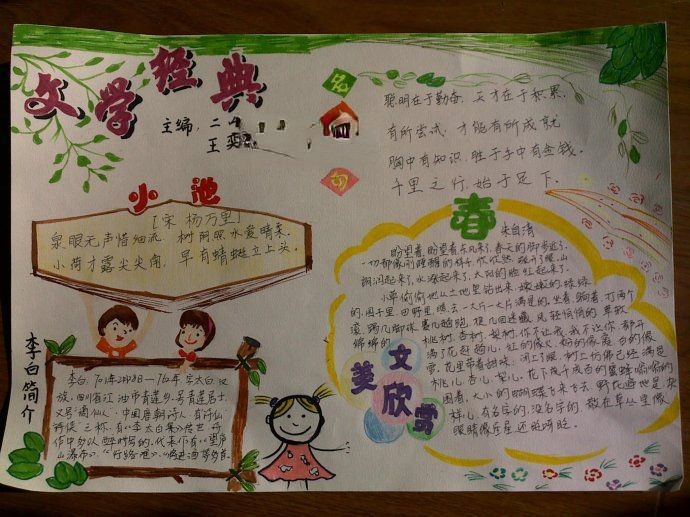 文学经典
主编：二
王奕
名句
聪明在于勤奋，天才在于积累。
有所尝试，才能有所成就
胸中有知识，胜于手中有金钱。
千里之行，始于足下。
小池
[宋 杨万里]
泉眼无声惜细流，树阴照水爱晴柔。
小荷才露尖尖角，早有蜻蜓立上头。
李白简介
李白，701年2月28日—762年，字太白，汉
族，四川省江油市青莲乡，号青莲居士，
又号"谪仙人"，中国唐朝诗人，有"诗仙"
"诗侠"之称。有《李太白集》传世，诗
作中多以醉时写的，代表作有《望庐
山瀑布》、《行路难》、《将进酒》等多首。
春
朱自清
盼望着，盼望着，东风来了，春天的脚步近了。
一切都像刚睡醒的样子，欣欣然张开了眼。山
朗润起来了，水涨起来了，太阳的脸红起来了。
小草偷偷地从土地里钻出来，嫩嫩的，绿绿
的。园子里，田野里，瞧去，一大片一大片满是的。坐着，躺着，打两个
滚，踢几脚球，赛几趟跑，捉几回迷藏。风轻悄悄的，草软
绵绵的。
桃树、杏树、梨树，你不让我，我不让你，都开
满了花赶趟儿。红的像火，粉的像霞，白的像
雪。花里带着甜味；闭了眼，树上仿佛已经满是
桃儿、杏儿、梨儿。花下成千成百的蜜蜂嗡嗡的
闹着，大小的蝴蝶飞来飞去。野花遍地是：杂
样儿，有名字的，没名字的，散在草丛里像
眼睛像星星还眨呀眨。
美文欣赏